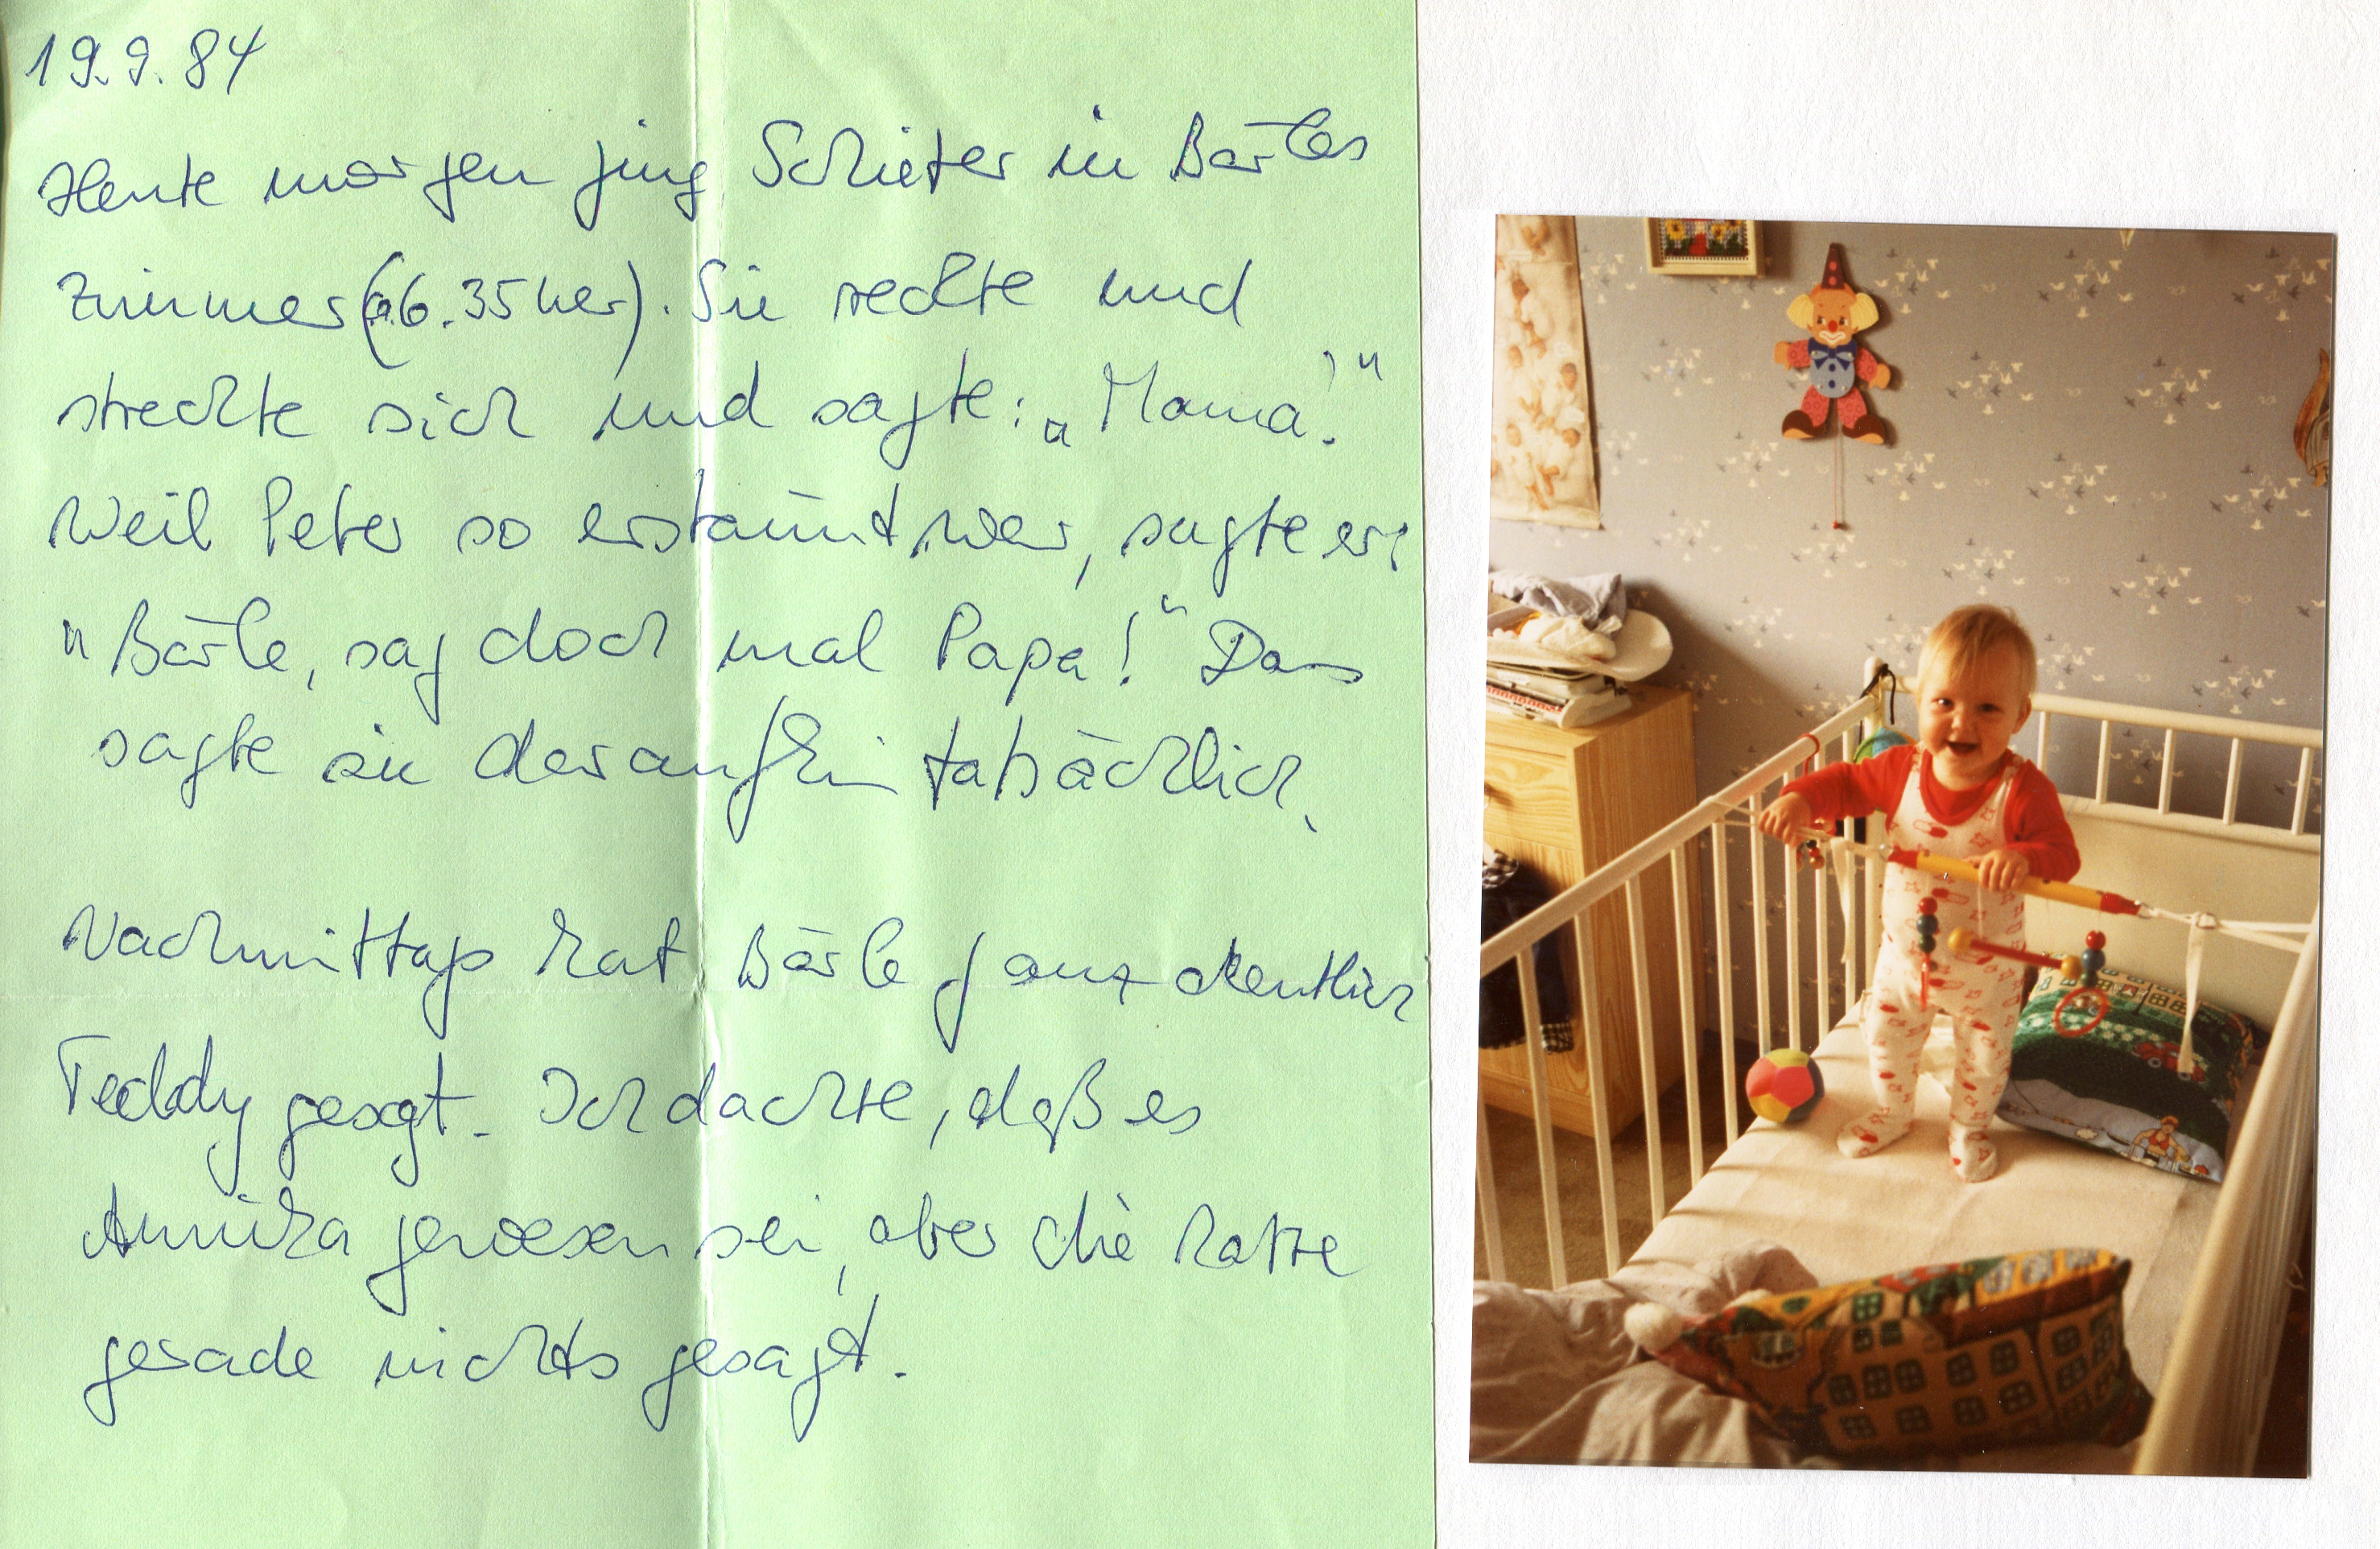 19.9.84
Heute morgen ging Schieter in Bärles
Zimmer (6.35 Uhr). Sie reckte und
streckte sich und sagte: „Mama!"
Weil Peter so erstaunt war, sagte er:
"Bärle, sag doch mal Papa!" Das
sagte sie daraufhin tatsächlich.
Nachmittags hat Bärle ganz deutlich
Teddy gesagt. Ich dachte, daß es
Annika gewesen sei, aber die hatte
gerade nichts gesagt.